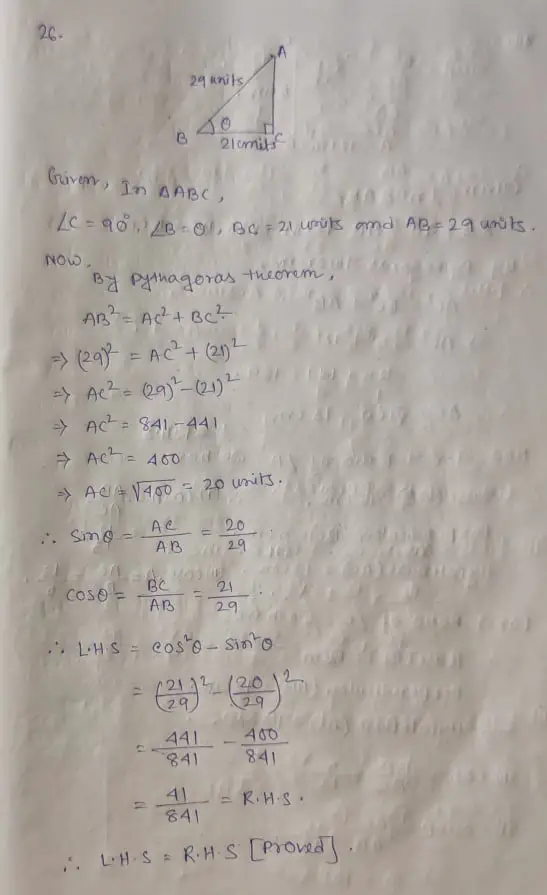 26.
A
29 units
θ
B
C
21 units
Given, In ΔABC,
∠C = 90°, ∠B = θ, BC = 21 units and AB = 29 units.
Now,
By Pythagoras theorem,
AB² = AC² + BC²
⇒ (29)² = AC² + (21)²
⇒ AC² = (29)² - (21)²
⇒ AC² = 841 - 441
⇒ AC² = 400
⇒ AC = √400 = 20 units.
∴ Sinθ = AC/AB = 20/29
cosθ = BC/AB = 21/29
∴ L.H.S = cos²θ - sin²θ
= (21/29)² - (20/29)²
= 441/841 - 400/841
= 41/841 = R.H.S.
∴ L.H.S = R.H.S [Proved].